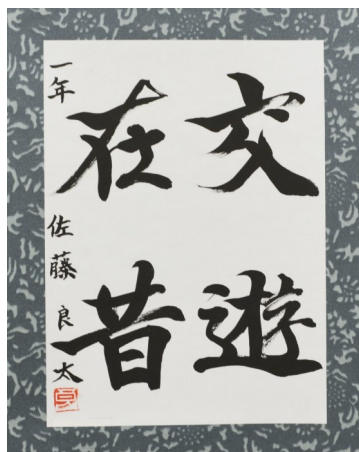 交遊
在昔
一年 佐藤良太